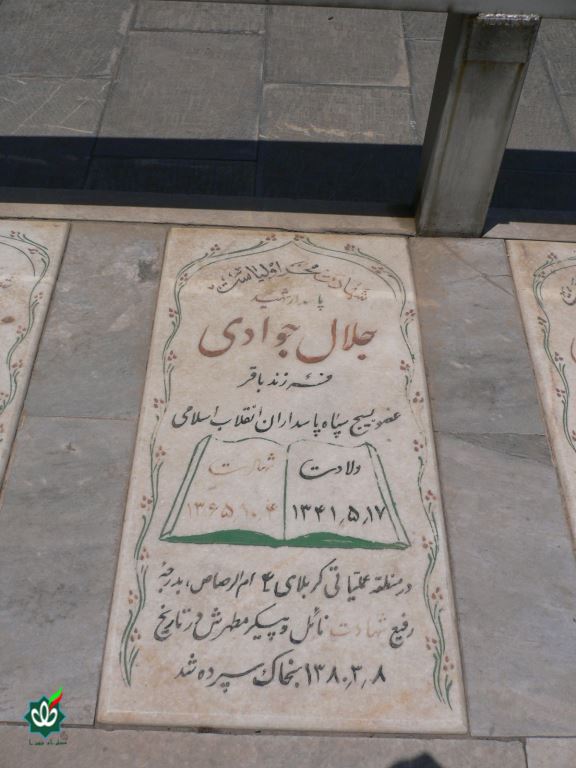 شهادت هنر اولیاست
پاسدار شهید
جلال جوادی
فرزند باقر
عضو بسیج سپاه پاسداران انقلاب اسلامی
ولادت
۱۳۴۱٫۵٫۱۷
شهادت
۱۳۶۵٫۱۰٫۴
در منطقه عملیاتی کربلای ۴ ام الرصاص، بدرجهٔ
رفیع شهادت نائل و پیکر مطهرش در تاریخ
۱۳۸۰٫۳٫۸ بخاک سپرده شد